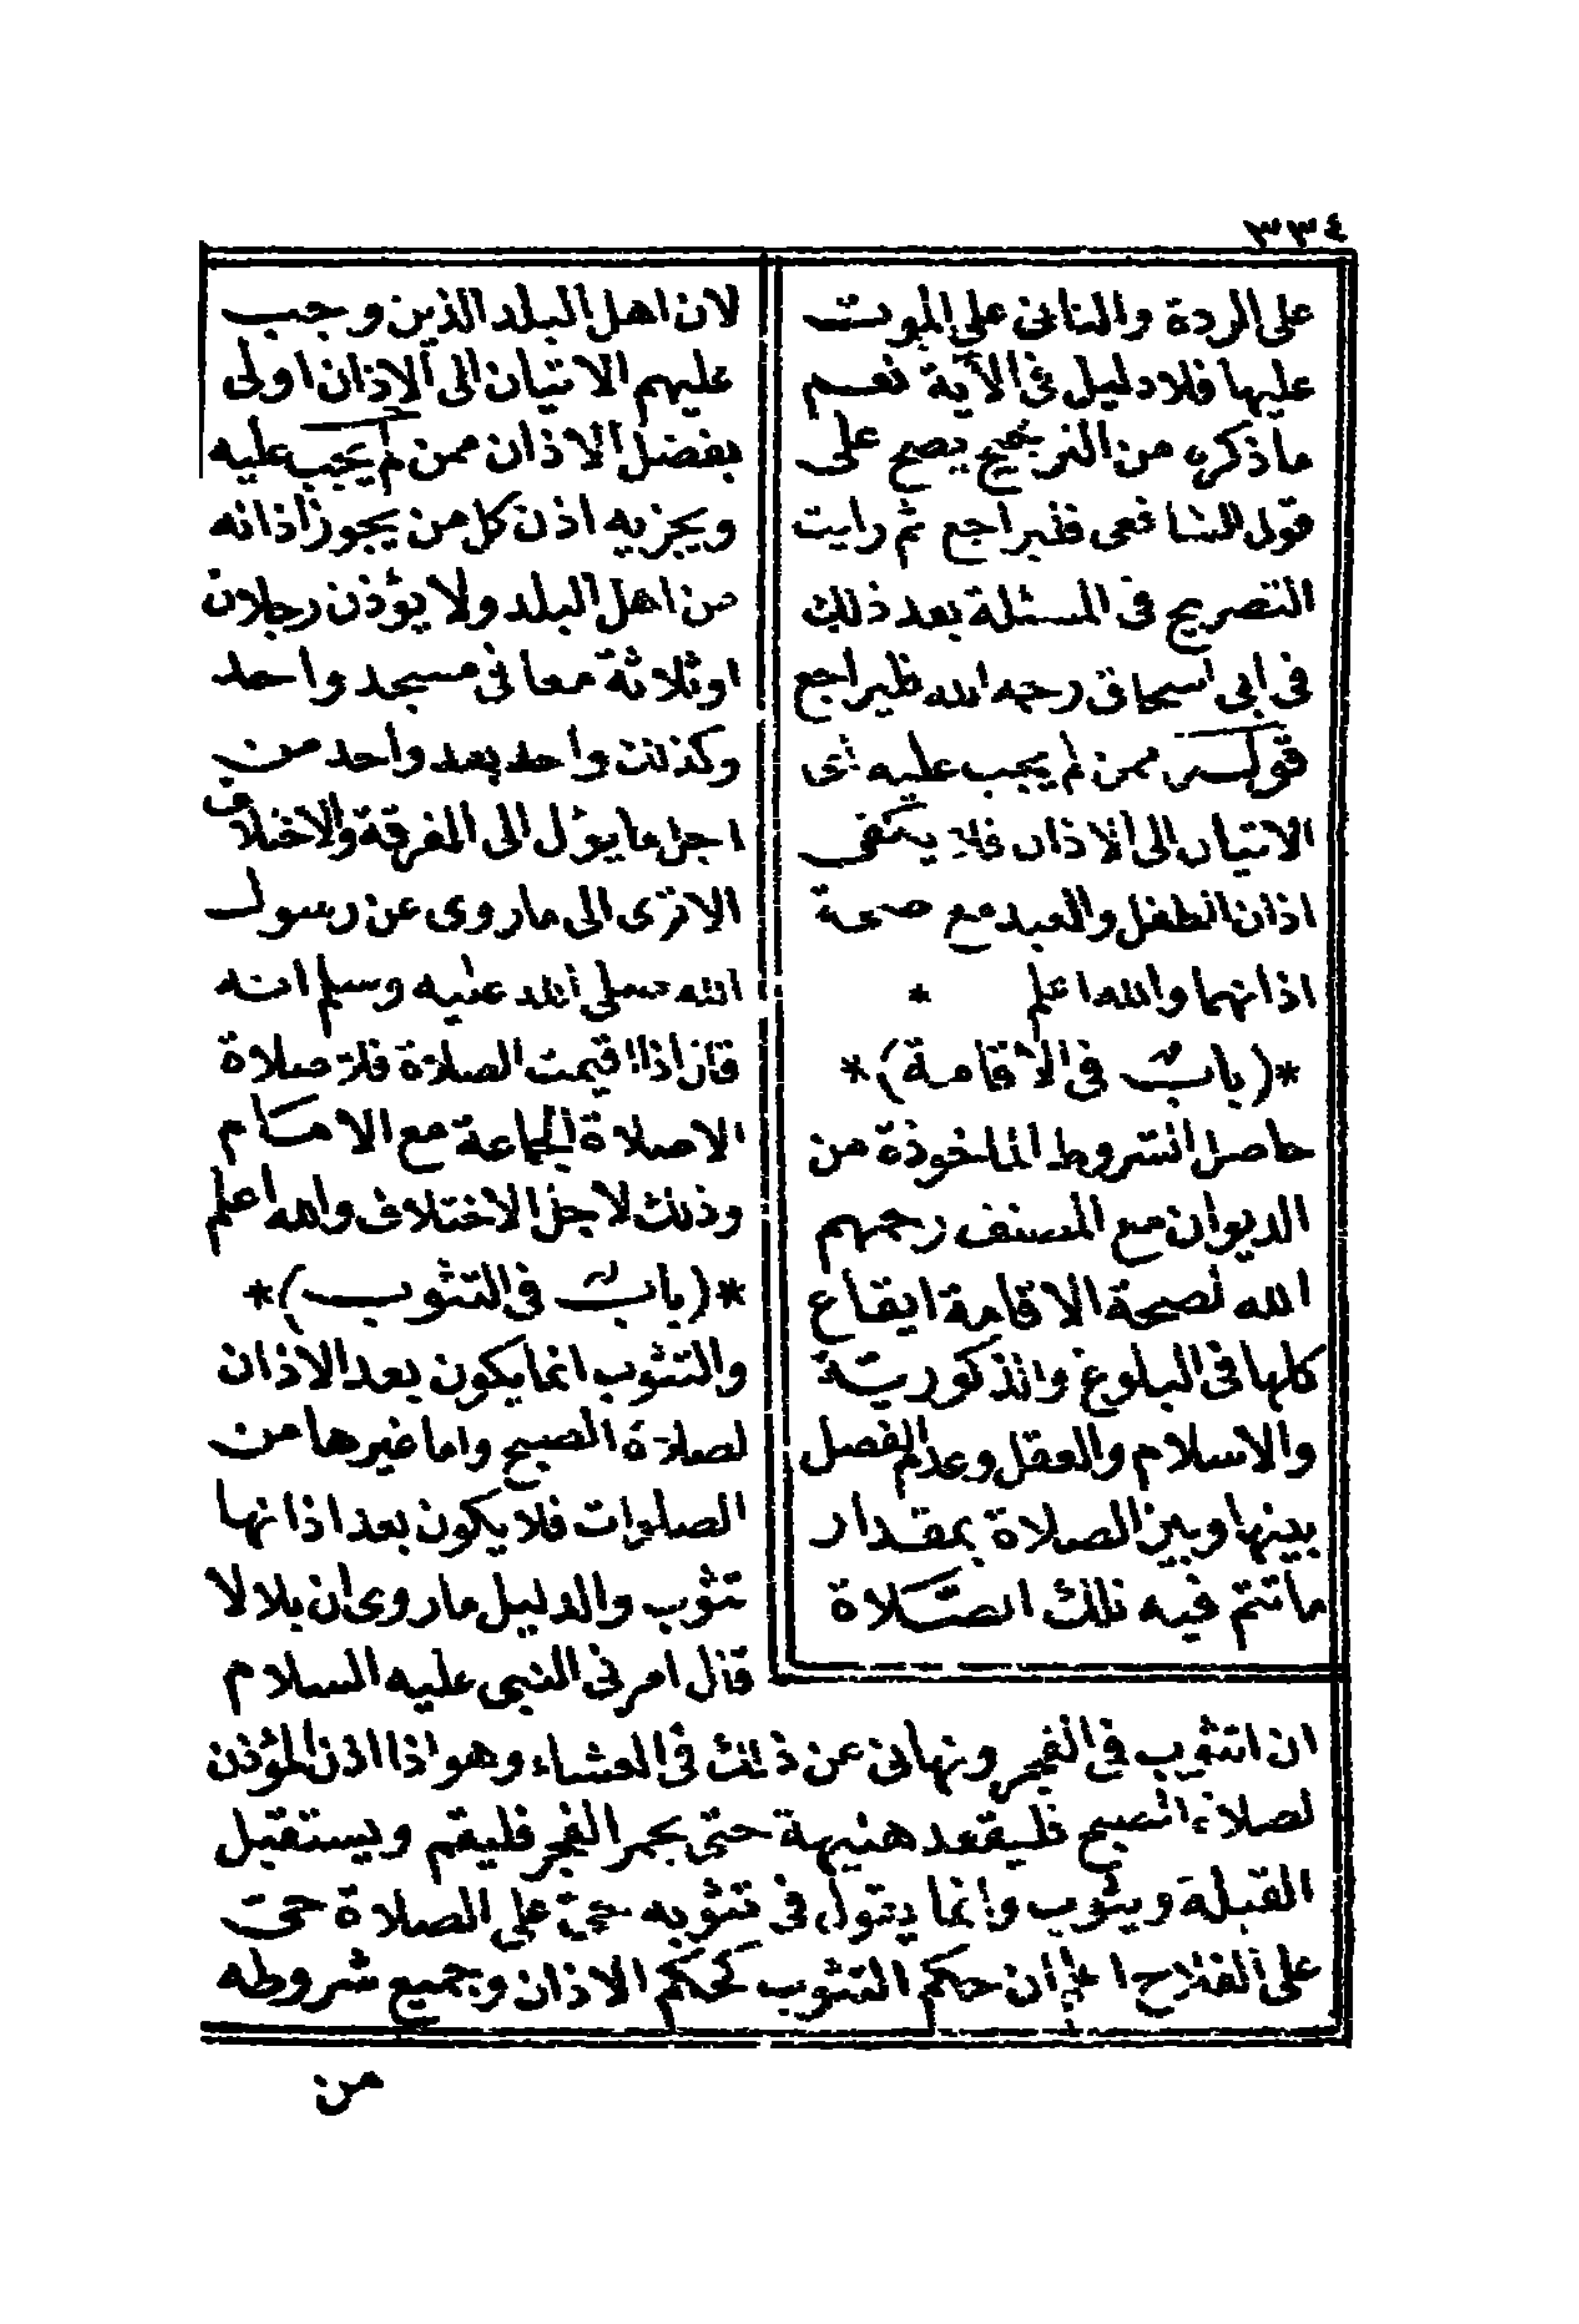 ٣٣٤
على الردة والثانى على الموت
عليها فلا دليل فى الآية نعم
ما ذكره من الترجيح يصح على
قول الشافعى فليراجع ثم رايت
التصريح فى المسئلة بعد ذلك
فى ابى اسحاق رحمه الله فليراجع
قوله ممن لم يجب عليه شى
الاتيان الى الاذان فلا يكفى
اذان الطفل والعبد مع صحة
اذانهما والله اعلم *
*(باب فى الاقامة)*
حاصل الشروط الماخوذة من
الديوان مع المصنف رحمهم
الله لصحة الاقامة ايقاع
كلها فى البلوغ والذكورية
والاسلام والعقل وعدم الفصل
بينها وبين الصلاة بمقدار
ما تتم فيه تلك الصلاة
لان اهل البلد الذين وجب
عليهم الاتيان الى الاذان اولى
بفضل الاذان ممن لم يجب عليه
ويجزيه اذن كل من يجوز اذانه
من اهل البلد ولا يؤذن رجلان
او ثلاثة معا فى مسجد واحد
وكذلك واحد بعد واحد من
اجل ما يؤل الى الفرقة والاختلاف
الا ترى الى ما روى عن رسول
الله صلى الله عليه وسلم انه
قال اذا اقيمت الصلاة فلا صلاة
الا صلاة الجماعة مع الامام
وذلك لاجل الاختلاف والله اعلم
*(باب فى التثوب)*
والتثوب انما يكون بعد الاذان
لصلاة الصبح واما غيرها من
الصلوات فلا يكون بعد اذانها
تثوب والدليل ما روى ان بلالا
قال امرنى النبى عليه السلام
ان اثوب فى الفجر ونهانى عن ذلك فى العشاء وهو اذا اذن المؤذن
لصلاة الصبح فليقعد هنيهة حتى يحمر الفجر فليقم ويستقبل
القبلة ويثوب وانما يقول فى تثوبه حى على الصلاة حى
على الفلاح الا ان حكم التثوب كحكم الاذان وجميع شروطه
من